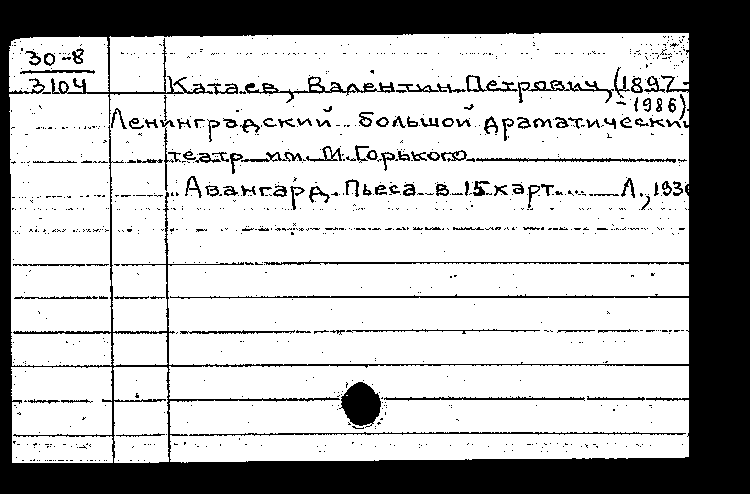 30-8
3104
Катаев, Валентин Петрович, (1897 -
- 1986)
Ленинградский большой драматический
театр им. М. Горького
... Авангард. Пьеса в 15 карт.... Л., 193